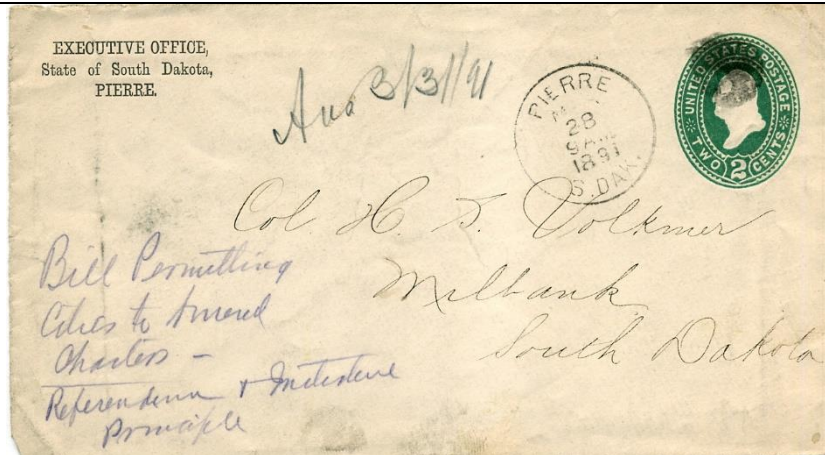 EXECUTIVE OFFICE,
State of South Dakota,
PIERRE.
Ans 3/31/91
PIERRE
28
9 AM
1891
S. DAK.
UNITED STATES POSTAGE
TWO 2 CENTS
Col. H. S. Volkmer
Milbank
South Dakota
Bill Permitting
Cities to Amend
Charters –
Referendum & Initiative
Principle